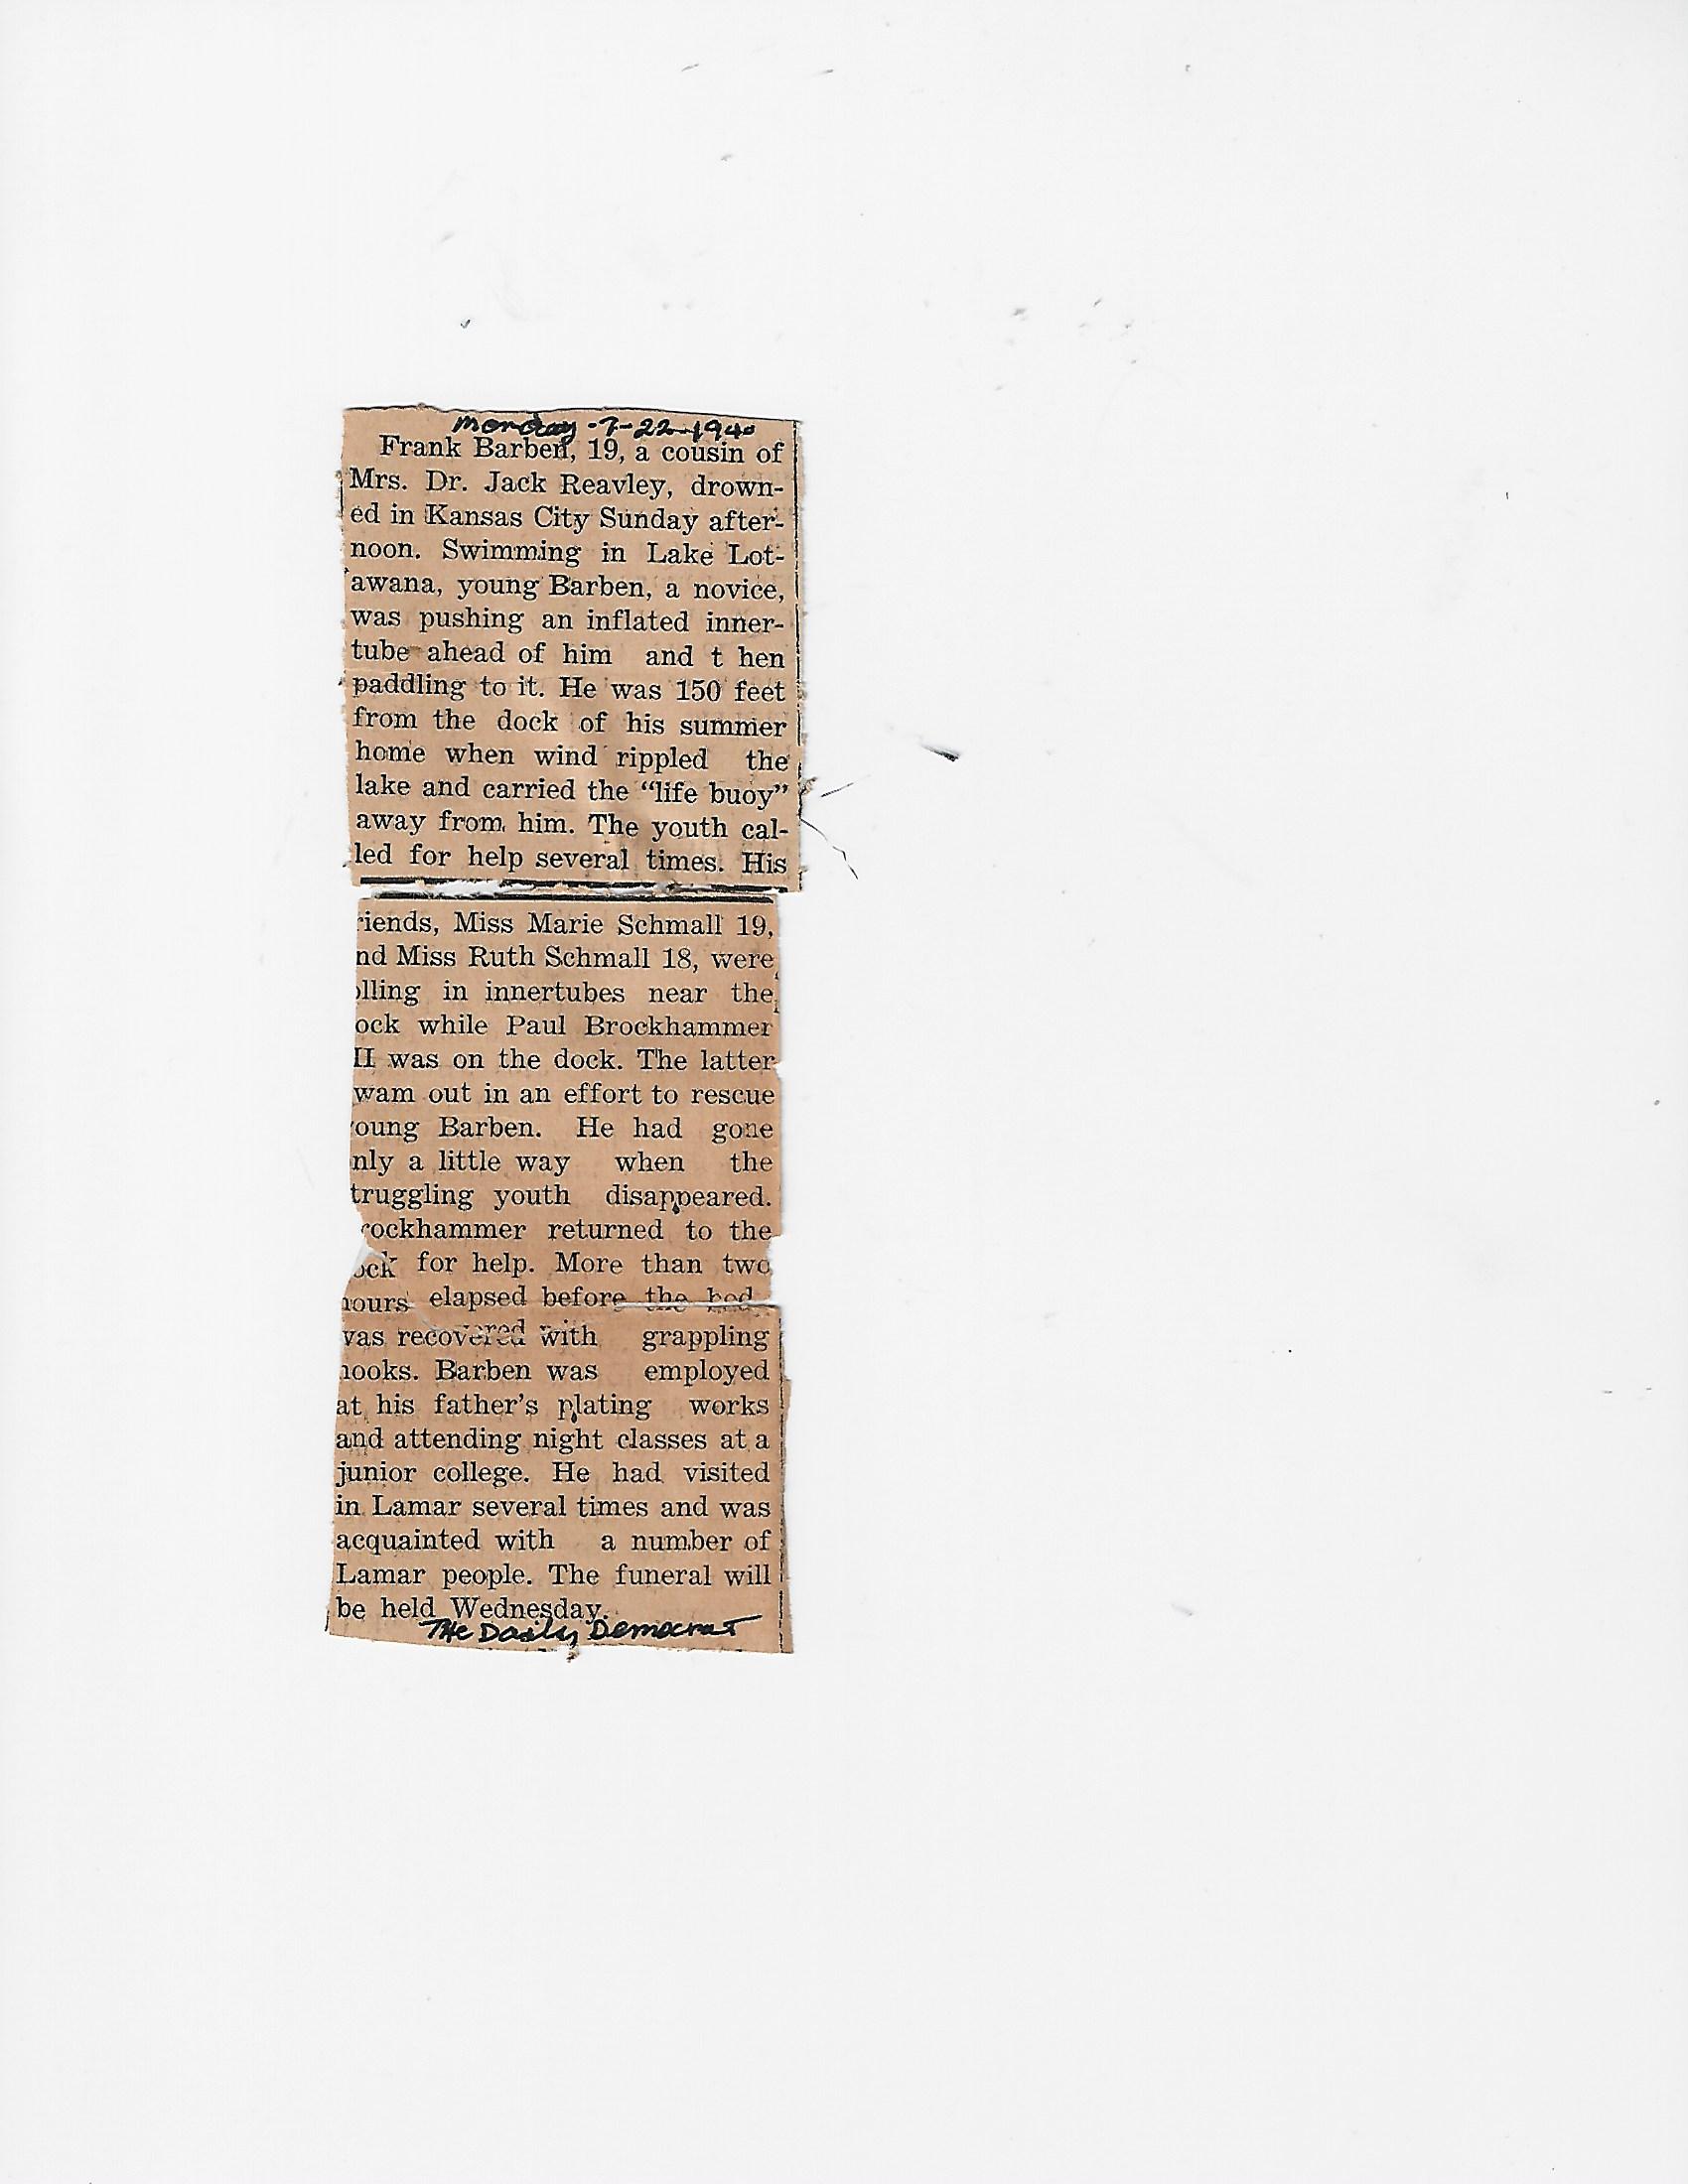 Monday -7-22-1940
Frank Barben, 19, a cousin of
Mrs. Dr. Jack Reavley, drown-
ed in Kansas City Sunday after-
noon. Swimming in Lake Lot-
awana, young Barben, a novice,
was pushing an inflated inner-
tube ahead of him and t hen
paddling to it. He was 150 feet
from the dock of his summer
home when wind rippled the
lake and carried the “life buoy”
away from him. The youth cal-
led for help several times. His
riends, Miss Marie Schmall 19,
nd Miss Ruth Schmall 18, were
olling in innertubes near the
ock while Paul Brockhammer
II was on the dock. The latter
wam out in an effort to rescue
oung Barben. He had gone
nly a little way when the
truggling youth disappeared.
rockhammer returned to the
ock for help. More than two
hours elapsed before the bod
was recovered with grappling
hooks. Barben was employed
at his father's plating works
and attending night classes at a
junior college. He had visited
in Lamar several times and was
acquainted with a number of
Lamar people. The funeral will
be held Wednesday.
The Daily Democrat